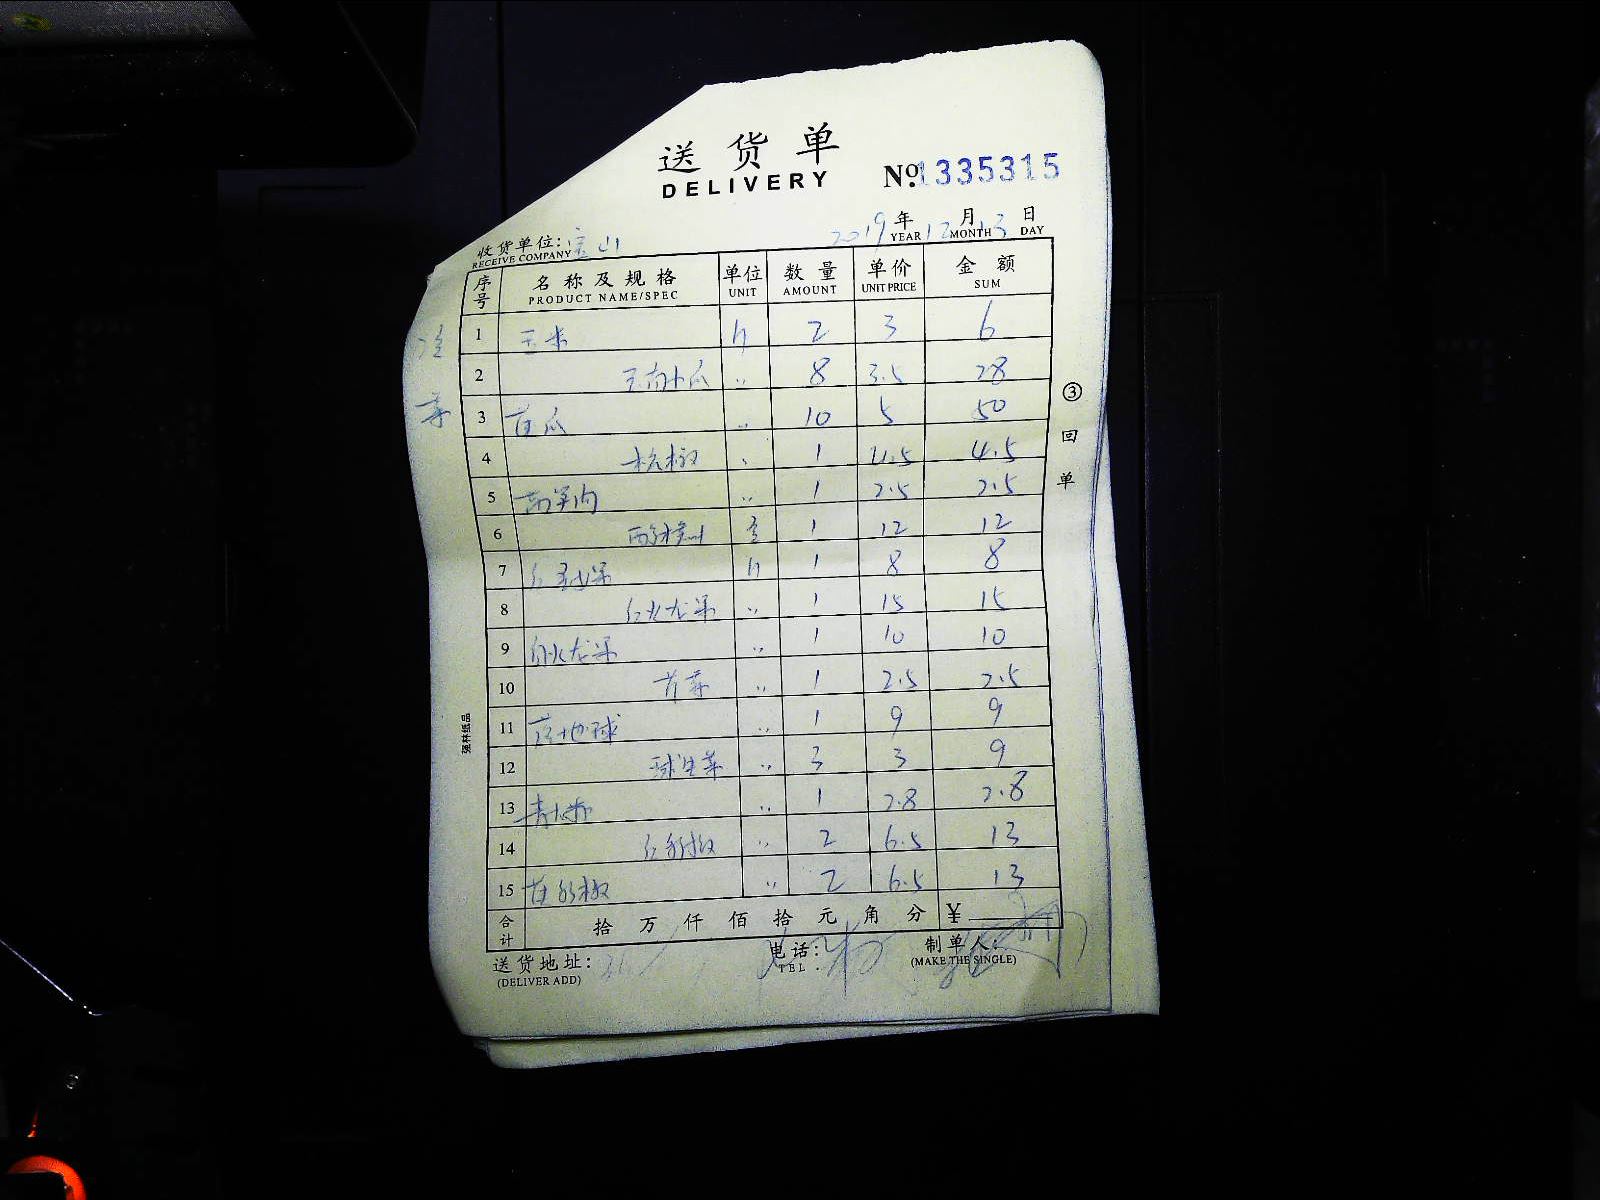 送货单
DELIVERY
No. 1335315
2019年12月13日
YEAR MONTH DAY
收货单位:
RECEIVE COMPANY
序号 名称及规格 单位 数量 单价 金额
PRODUCT NAME/SPEC UNIT AMOUNT UNIT PRICE SUM
1 玉米 2 3 6
2 8 3.5 28
3 黄瓜 〃 10 5 50
4 1 4.5 4.5
5 〃 1 2.5 2.5
6 1 12 12
7 1 8 8
8 红火龙果 〃 1 15 15
9 白火龙果 〃 1 10 10
10 芹菜 〃 1 2.5 2.5
11 〃 1 9 9
12 球生菜 〃 3 3 9
13 〃 1 2.8 2.8
14 红彩椒 〃 2 6.5 13
15 黄彩椒 〃 2 6.5 13
合计 拾 万 仟 佰 拾 元 角 分 ¥
送货地址: 电话: 制单人:
(DELIVER ADD) TEL. (MAKE THE SINGLE)
③回单
强林纸品